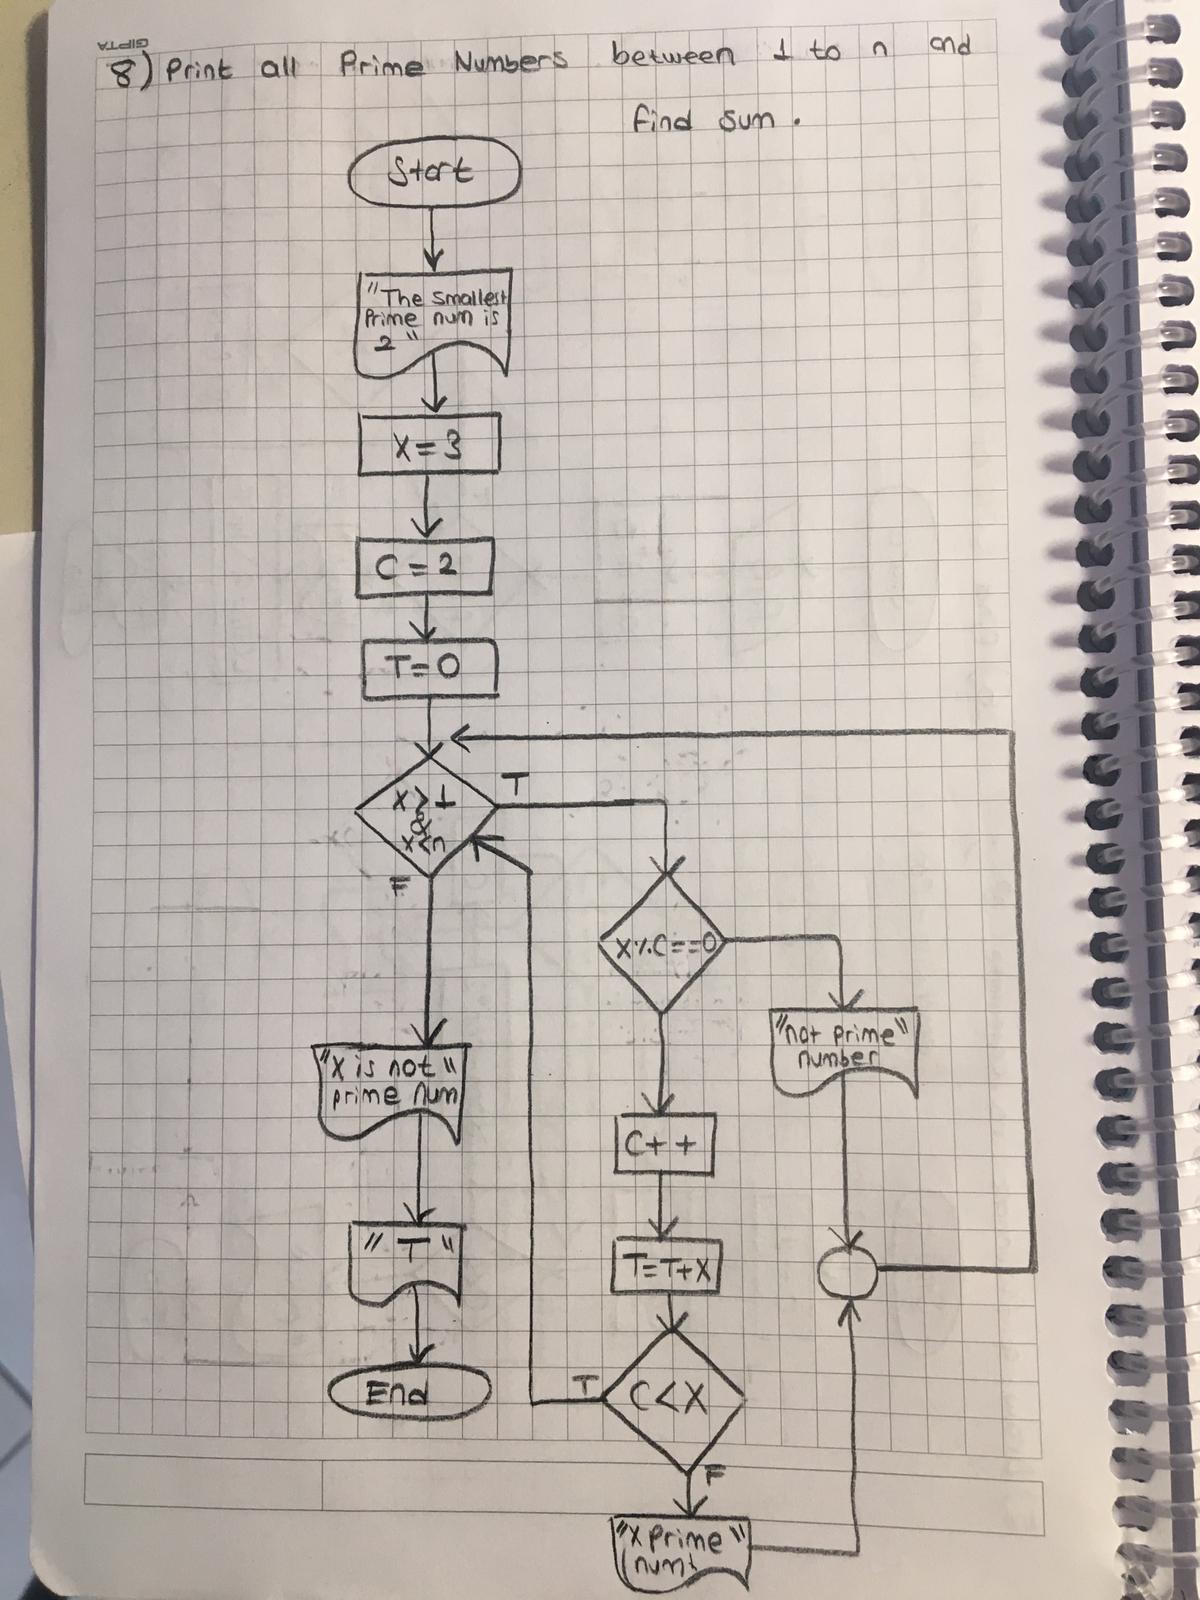 GIPTA
8) Print all Prime Numbers between 1 to n and
find sum.
Start
"The smallest
Prime num is
2"
X = 3
C = 2
T = 0
X > 1
&
X < n
T
F
X % C == 0
"not prime"
number
"X is not"
prime num
C++
" T "
T = T + X
C < X
T
F
End
"X Prime"
num